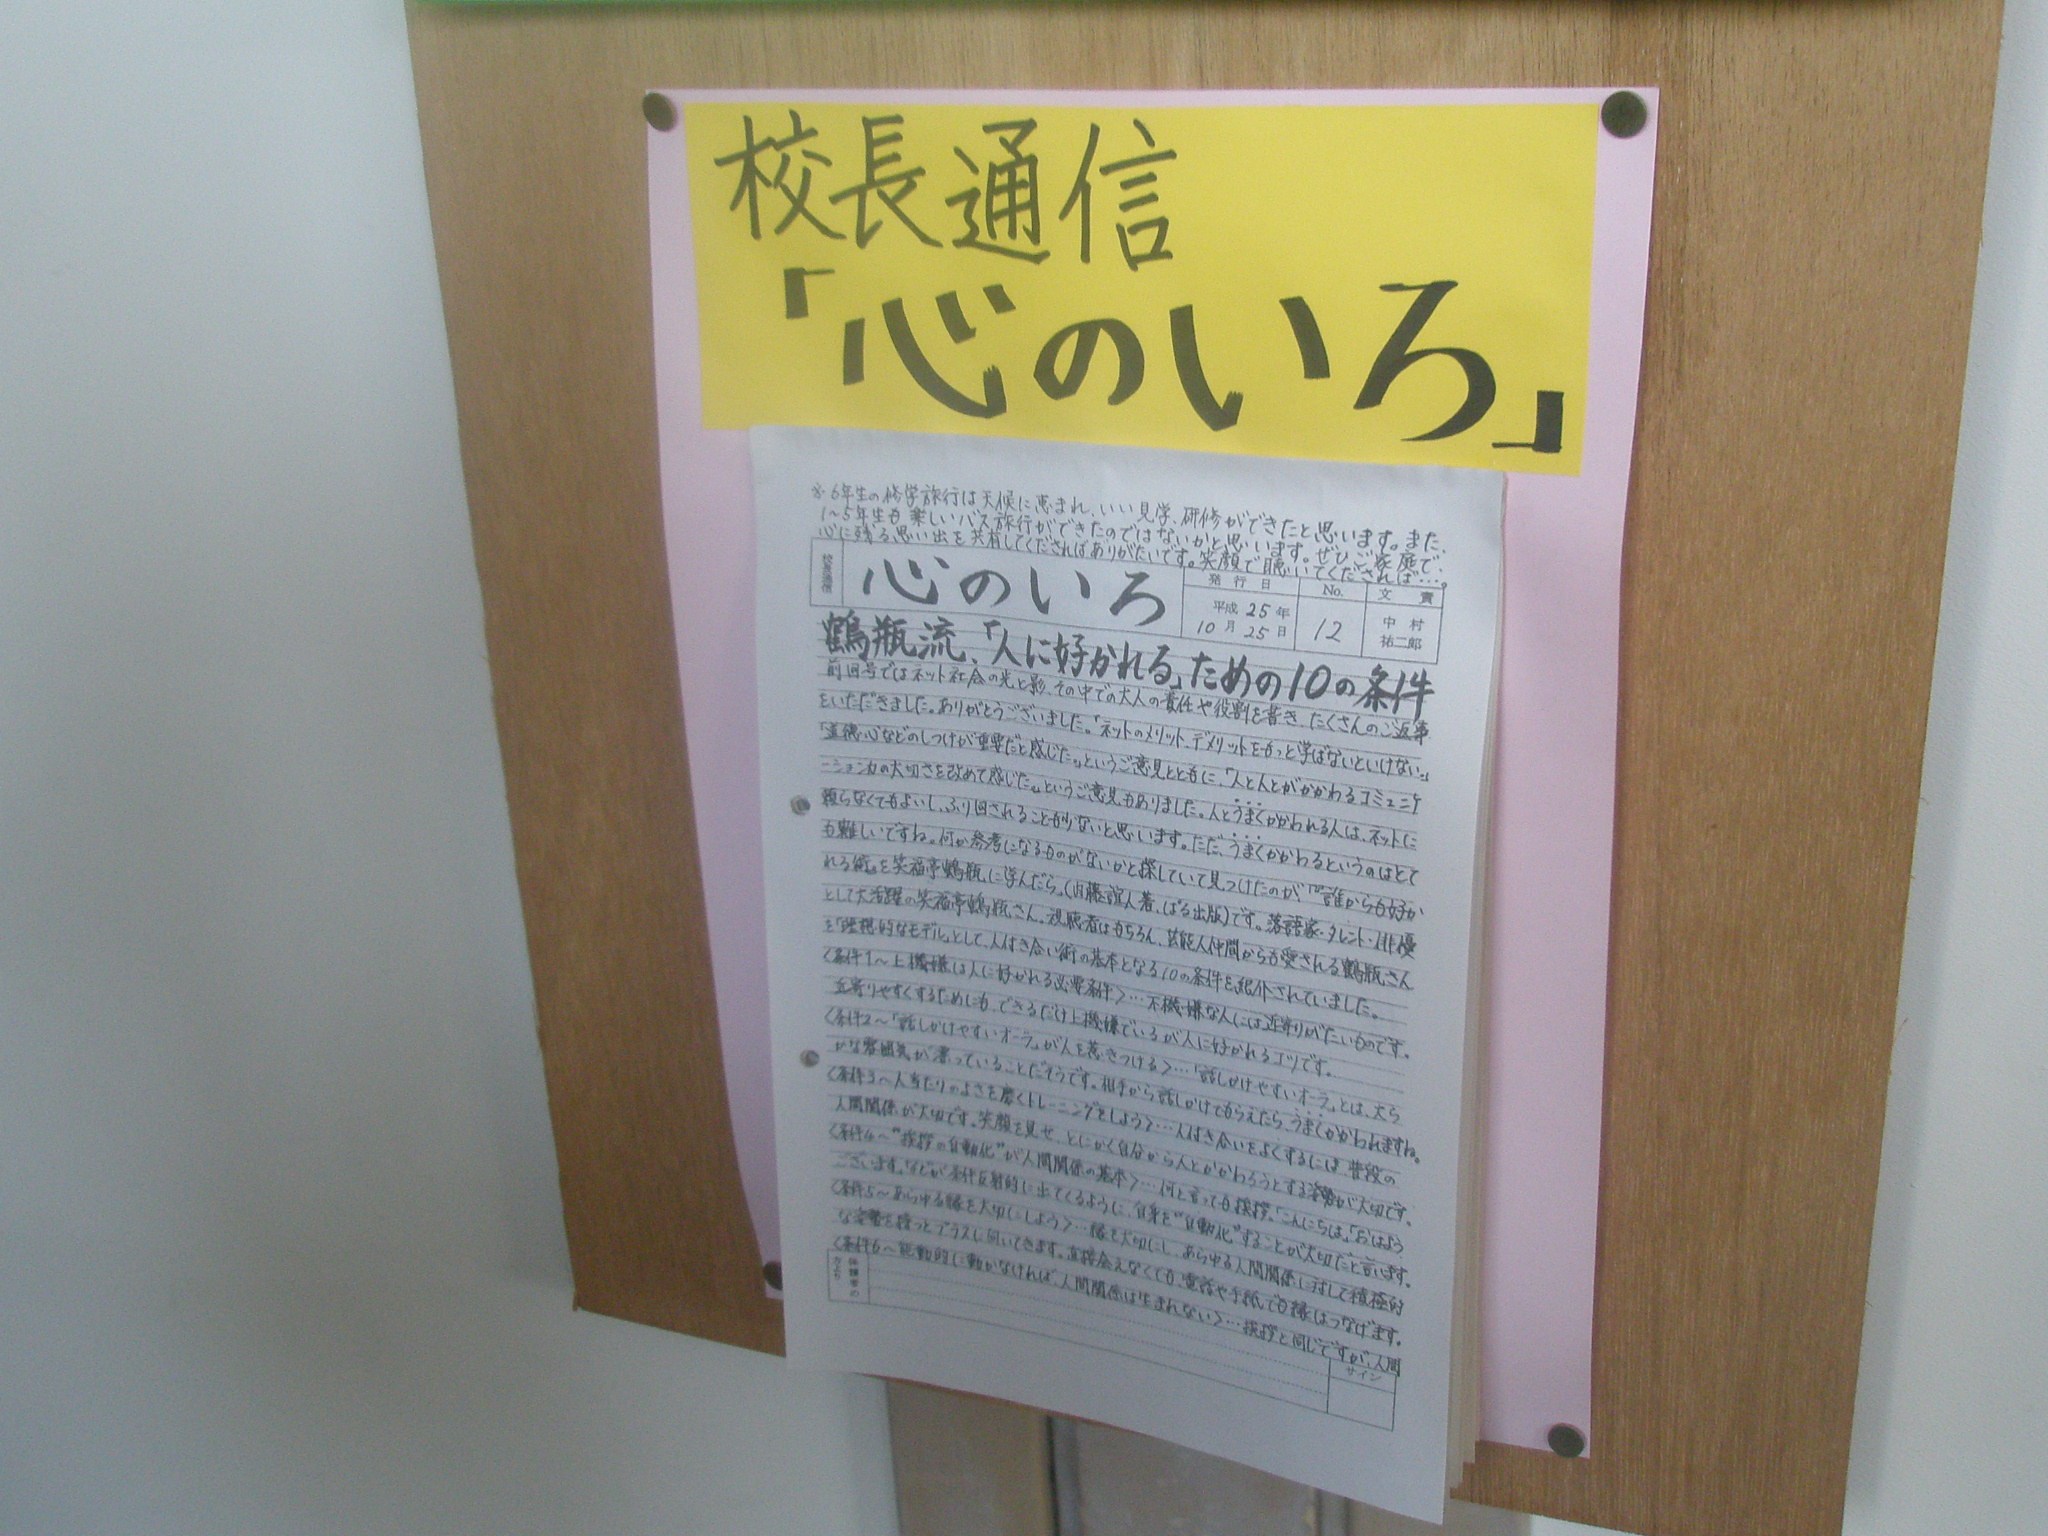 校長通信
「心のいろ」
※6年生の修学旅行は天候に恵まれ、いい見学、研修ができたと思います。また、
1~5年生も楽しいバス旅行ができたのではないかと思います。ぜひ、ご家庭で、
心に残る思い出を共有してくださればありがたいです。笑顔で聴いてくだされば…。
校長通信
心のいろ
発行日 No. 文責
平成25年10月25日 12 中村祐二郎
鶴瓶流、「人に好かれる」ための10の条件
前回号ではネット社会の光と影、その中での大人の責任や役割を書き、たくさんのご返事
をいただきました。ありがとうございました。「ネットのメリット、デメリットをもっと学ばないといけない。」
「道徳心などのしつけが重要だと感じた。」というご意見とともに、「人と人とがかかわるコミュニケ
ーション力の大切さを改めて感じた。」というご意見もありました。人とうまくかかわれる人は、ネットに
頼らなくてもよいし、ふり回されることが少ないと思います。ただ、うまくかかわるというのはとて
も難しいですね。何か参考になるものがないかと探していて見つけたのが、「『誰からも好か
れる術』を笑福亭鶴瓶に学んだら」(内藤誼人著、ぱる出版)です。落語家・タレント・俳優
として大活躍の笑福亭鶴瓶さん。視聴者はもちろん、芸能人仲間からも愛される鶴瓶さん
を「理想的なモデル」として、人付き合い術の基本となる10の条件を紹介されていました。
〈条件1~上機嫌は人に好かれる必要条件〉…不機嫌な人には近寄りがたいものです。
近寄りやすくするためにも、できるだけ上機嫌でいるが人に好かれるコツです。
〈条件2~「話しかけやすいオーラ」が人を惹きつける〉…「話しかけやすいオーラ」とは、大ら
かな雰囲気が漂っていることだそうです。相手から話しかけてもらえたら、うまくかかわれますね。
〈条件3~人当たりのよさを磨くトレーニングをしよう〉…人付き合いをよくするには、普段の
人間関係が大切です。笑顔を見せ、とにかく自分から人とかかわろうとする姿勢が大切です。
〈条件4~"挨拶の自動化"が人間関係の基本〉…何と言っても挨拶。「こんにちは」「おはよう
ございます」などが条件反射的に出てくるように、自身を"自動化"することが大切だと言います。
〈条件5~あらゆる縁を大切にしよう〉…縁を大切にし、あらゆる人間関係に対して積極的
な姿勢を持つとプラスに向いてきます。直接会えなくても、電話や手紙でも縁はつなげます。
〈条件6~能動的に動かなければ、人間関係は生まれない〉…挨拶と同じですが、人間
保護者の方より
サイン